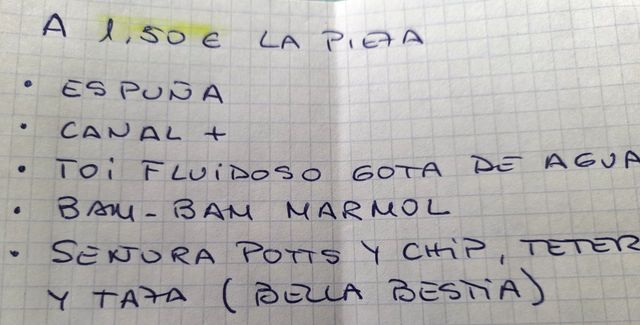 A 1,50 € LA PIEZA
• ESPUÑA
• CANAL +
• TOI FLUIDOSO GOTA DE AGUA
• BAM-BAM MARMOL
• SEÑORA POTTS Y CHIP, TETER
Y TAZA (BELLA BESTIA)